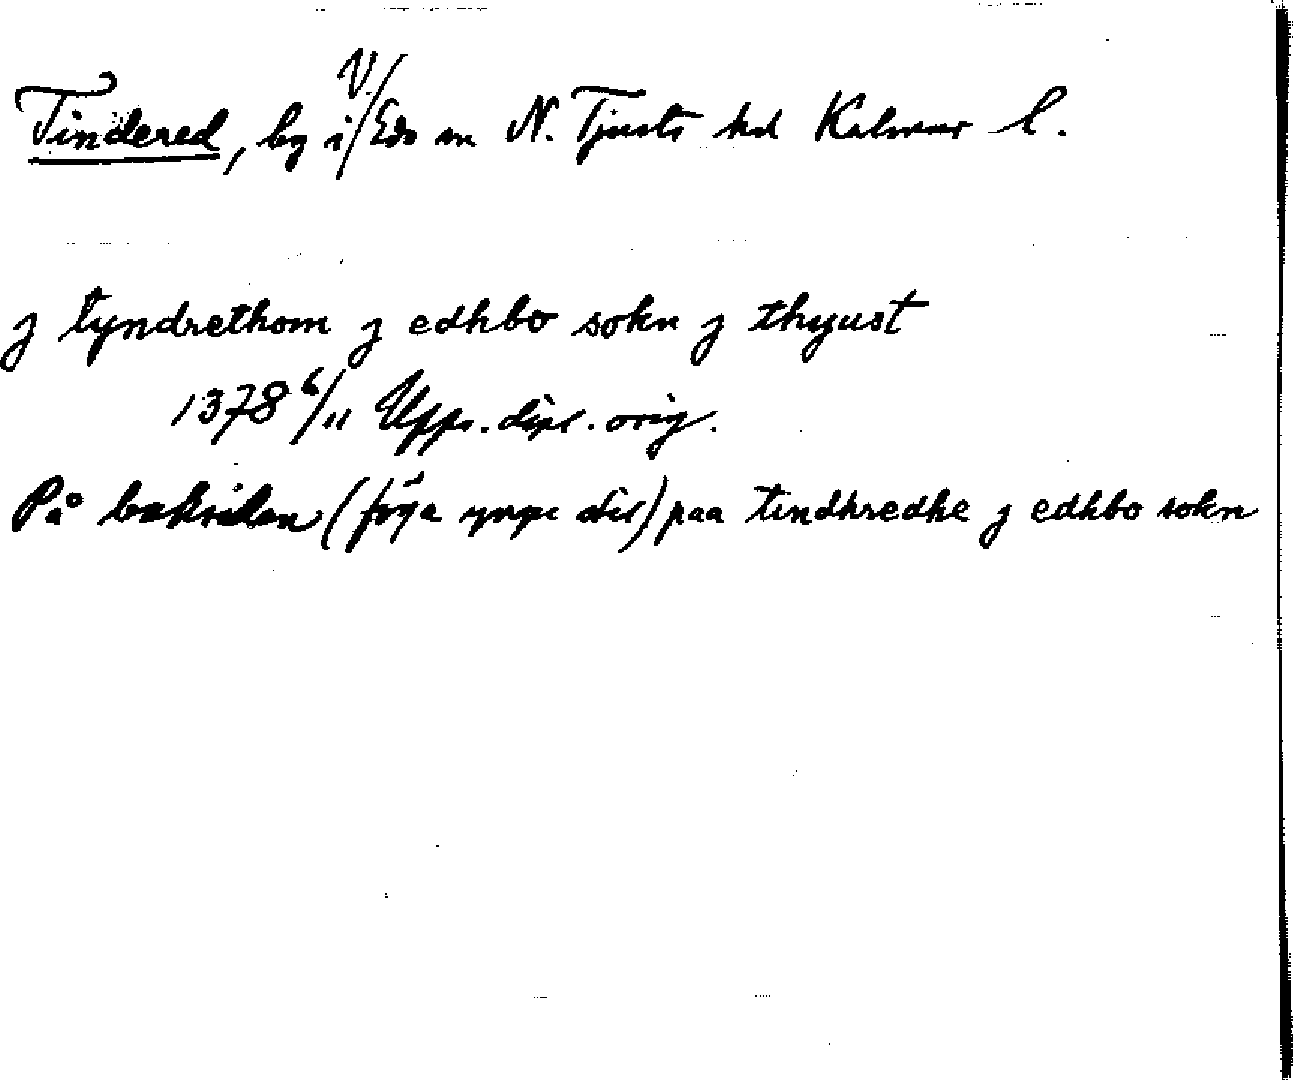 Tindered, by i V. Eds sn N. Tjusts hd Kalmar l.
j tyndrethom j edhbo sokn j thyust
1378 6/11 Upps. dipl. orig.
På baksidan (föga yngre stil) paa tindhredhe j edhbo sokn